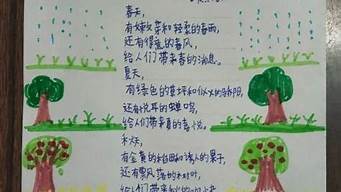 春天,
有嫩芽和轻柔的春雨,
还有很暖的春风,
给人们带来春的消息。
夏天,
有绿色的草坪和似火的骄阳,
还有悦耳的蝉鸣,
给人们带来夏的喜悦。
秋天,
有金黄的稻田和诱人的果子,
还有飘落的树叶,
给人们带来秋的